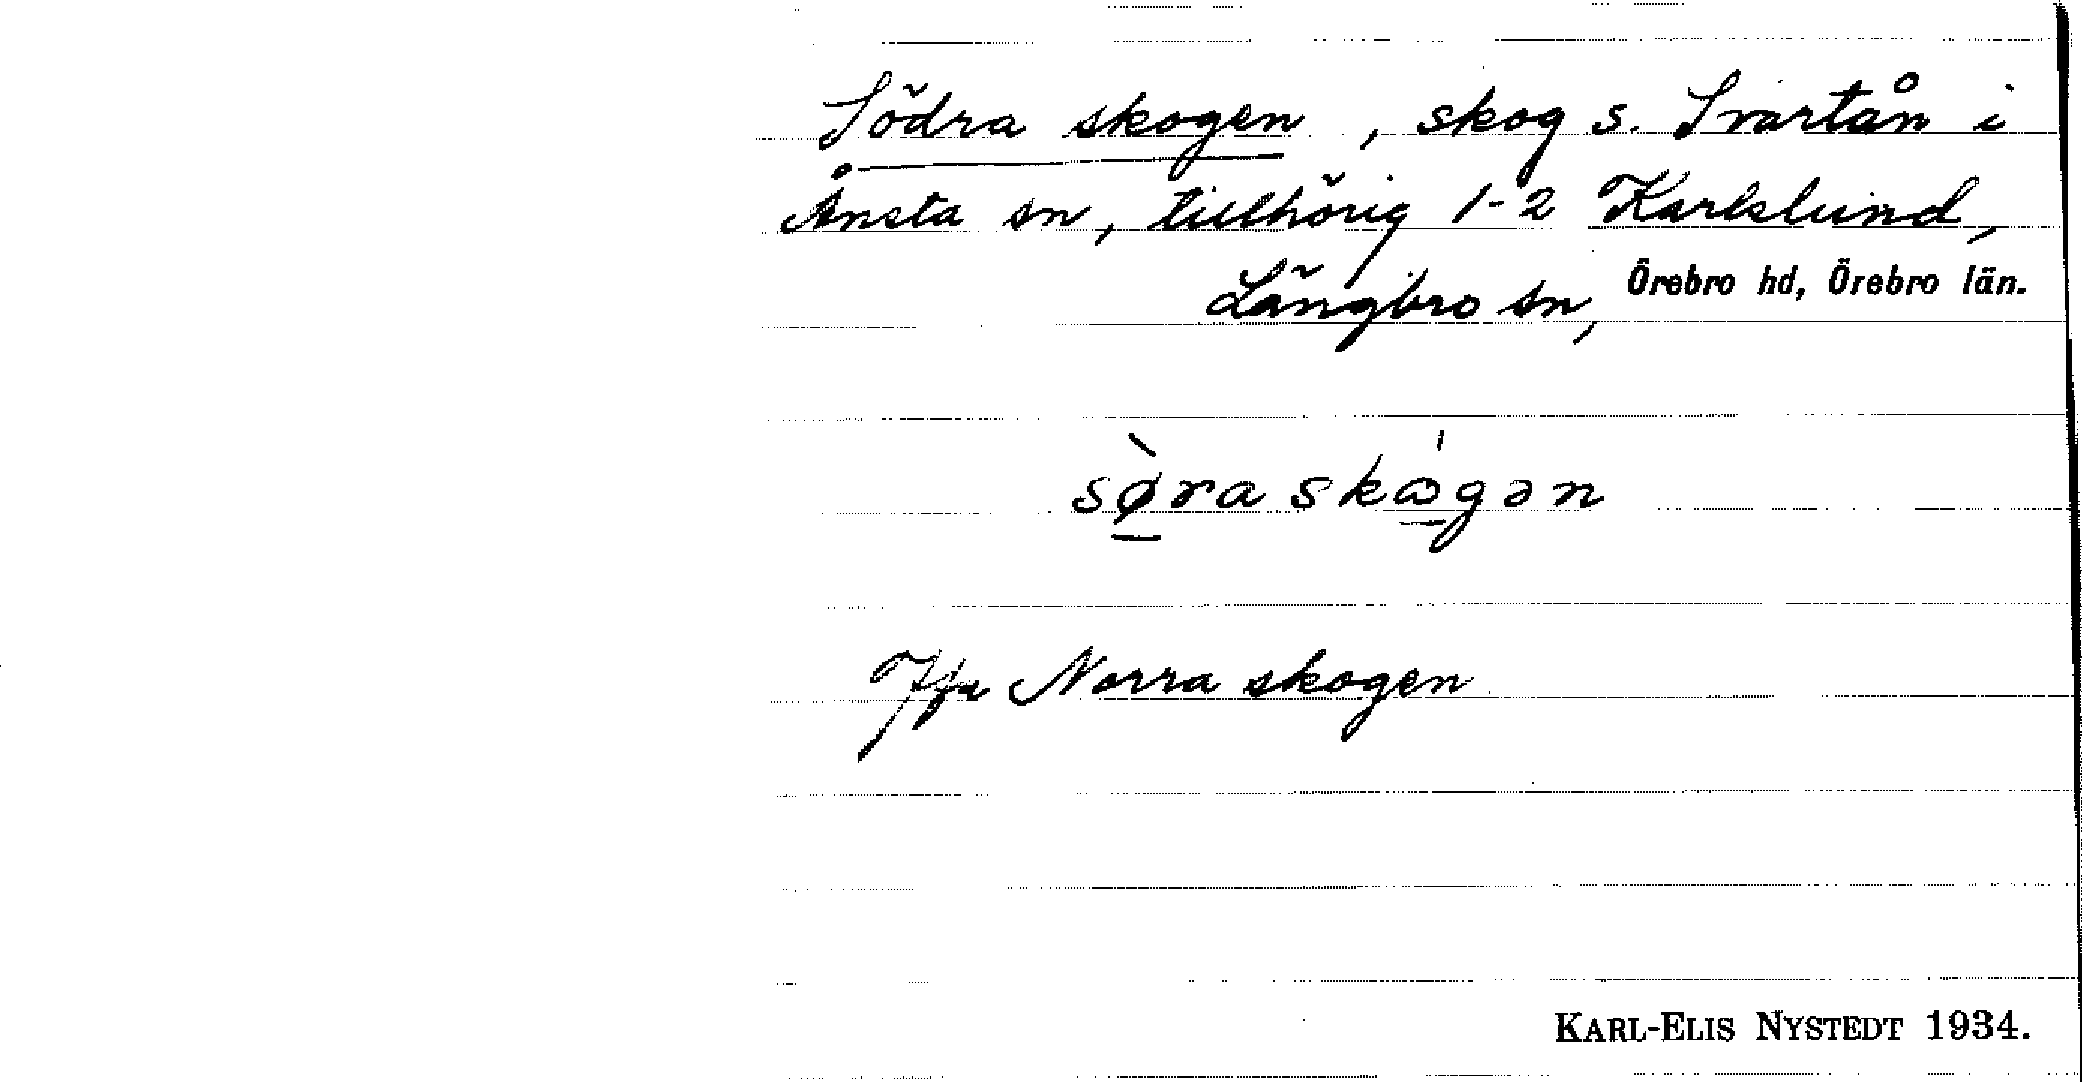 Södra skogen, skog s. Svartån i
Ånsta sn, tillhörig 1-2 Karlslund,
Längbro sn, Örebro hd, Örebro län.
sø̀ra skɷ́gən
Jfr Norra skogen
KARL-ELIS NYSTEDT 1934.